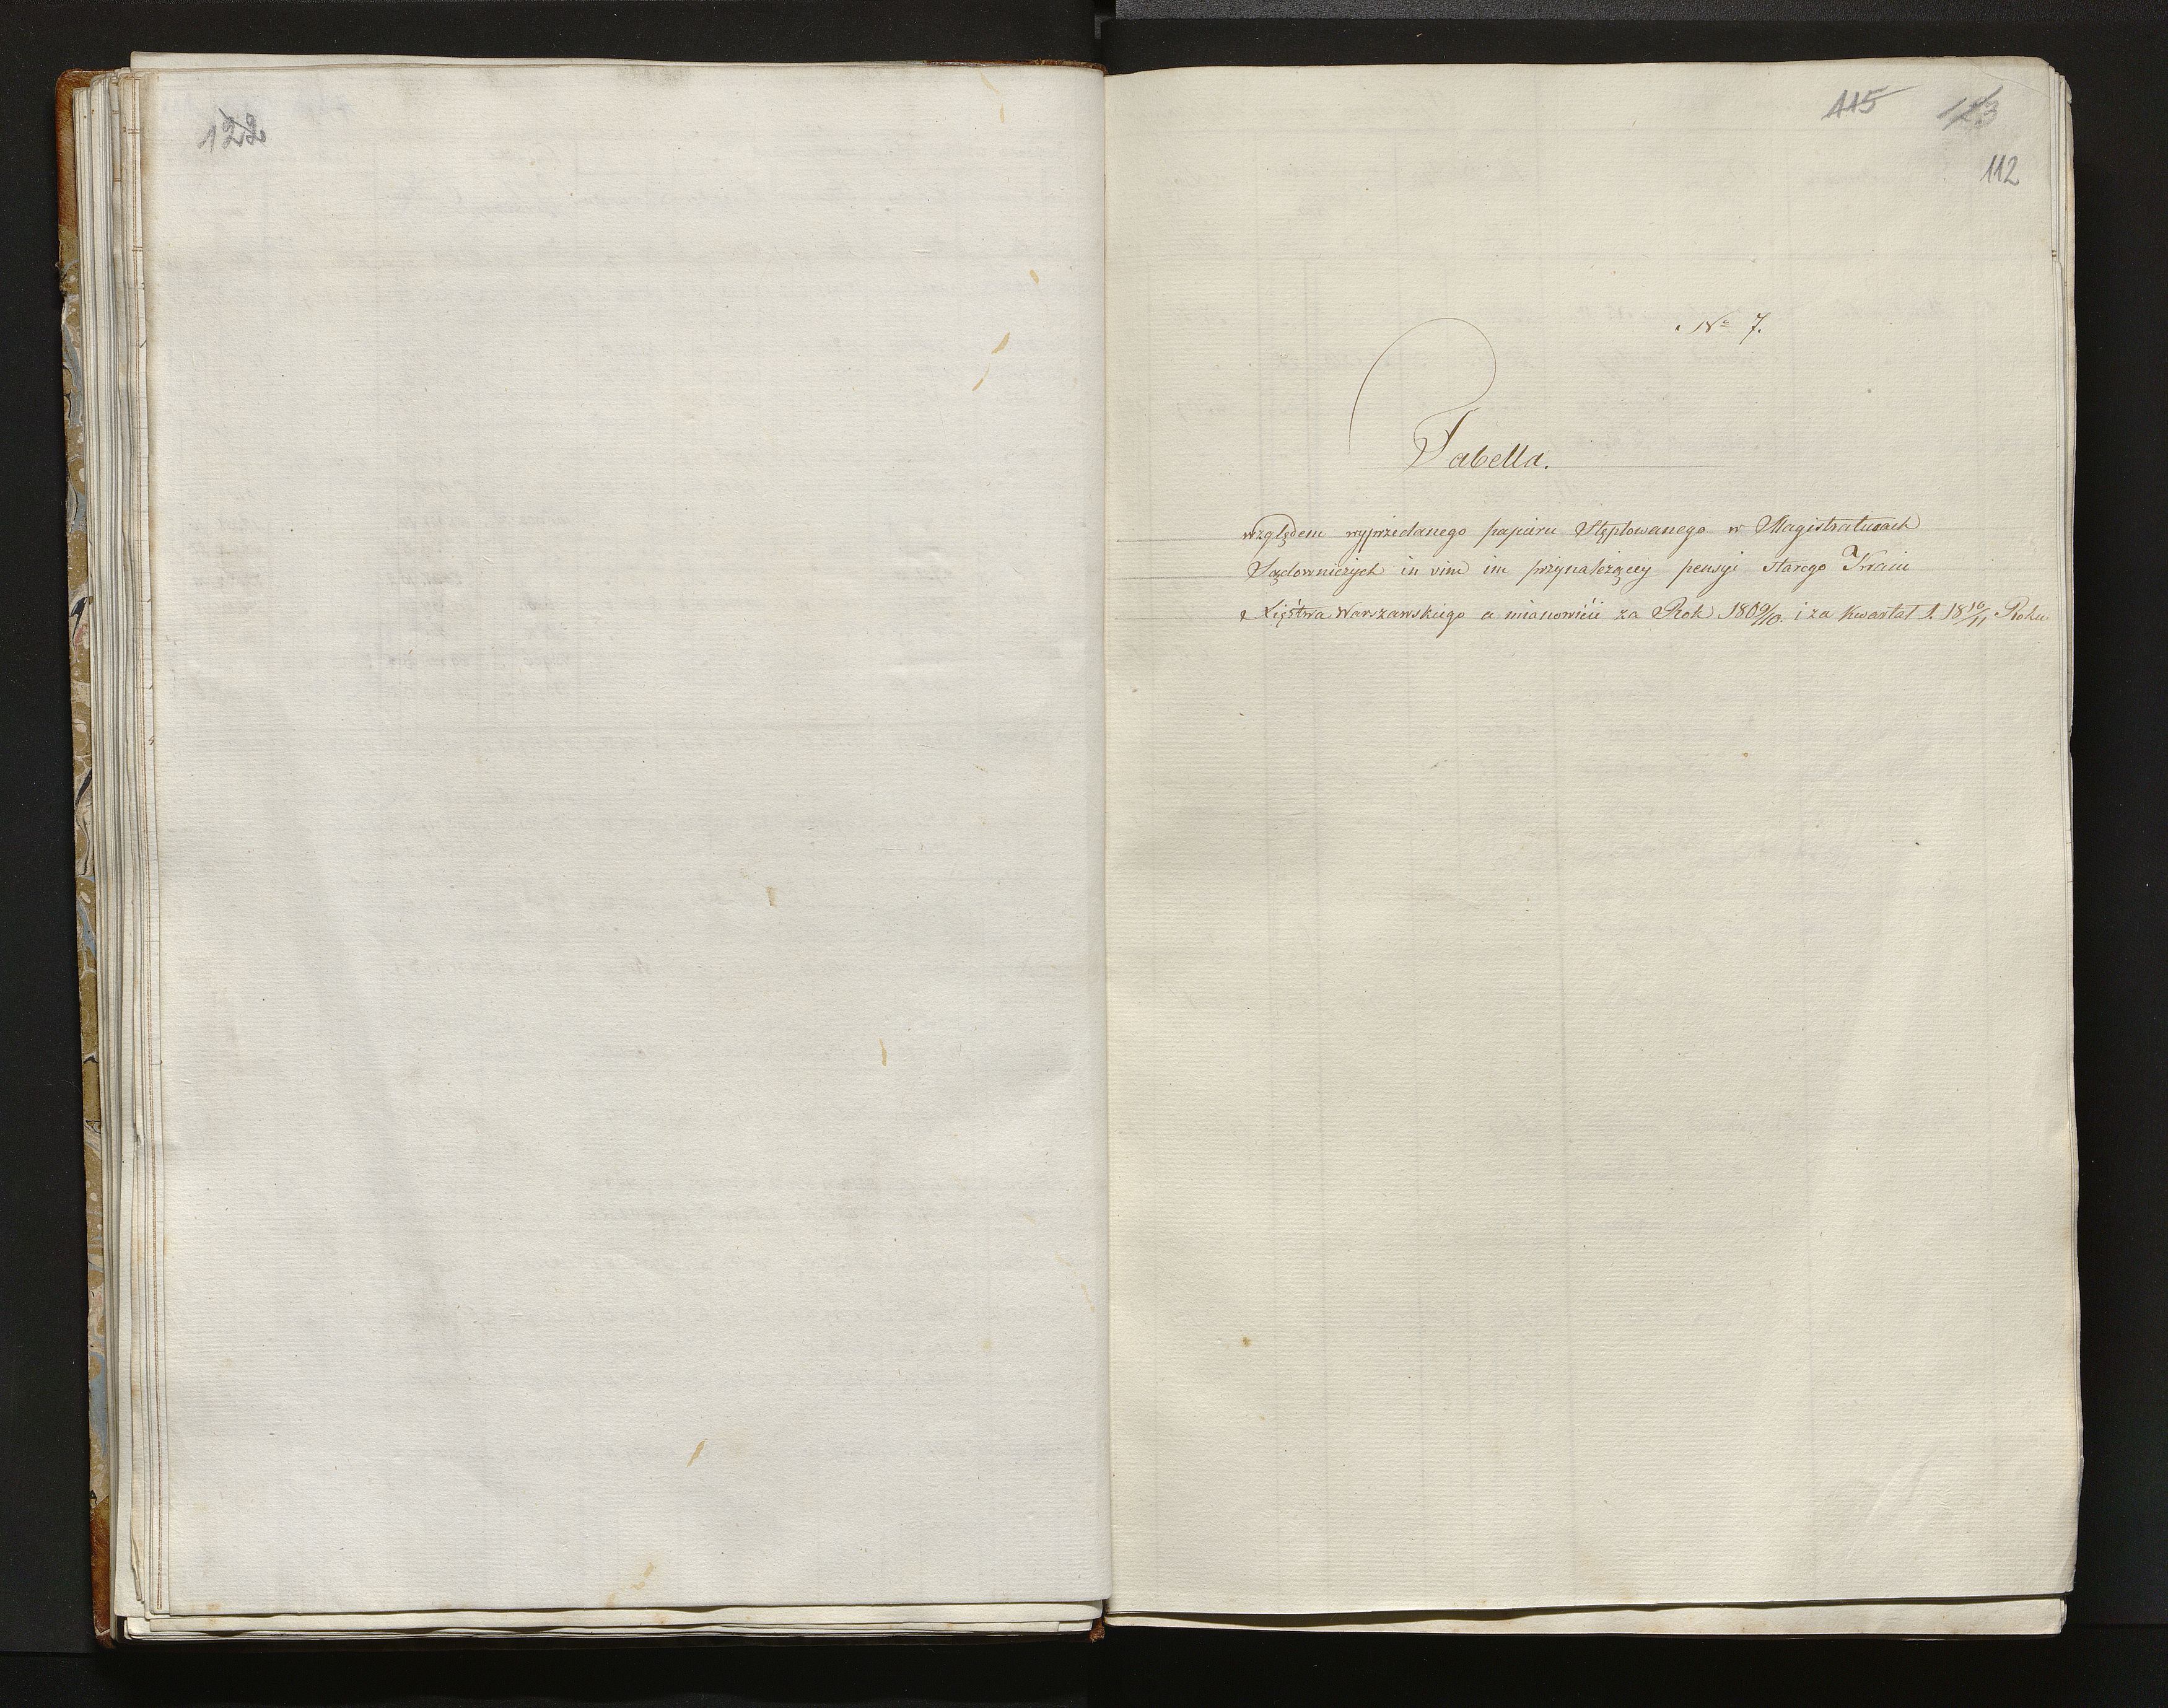 122
115 123
112
№ 7.
Tabella.
względem wyprzedanego papieru Stęplowanego w Magistraturach
Sądowniczych in vim im przynależącey pensyi starego Kraiu
Xięstwa Warszawskiego a mianowicie za Rok 1809/10. i za Kwartał 1. 1810/11 Roku